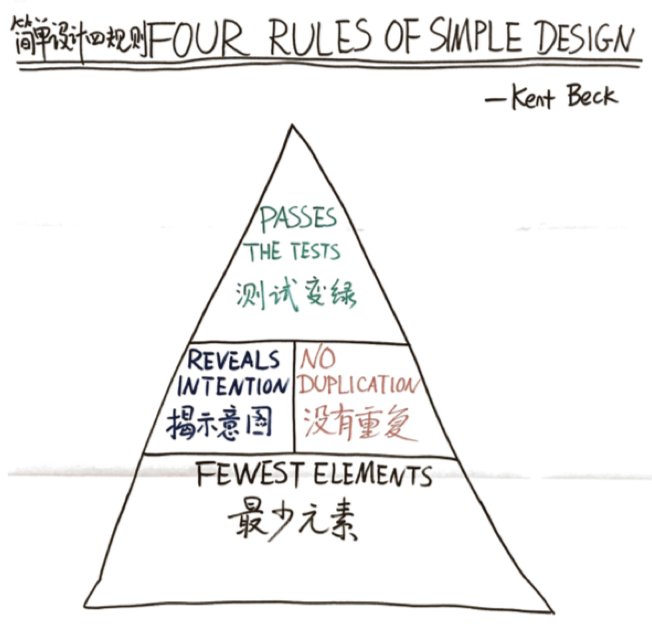 简单设计四规则FOUR RULES OF SIMPLE DESIGN
—Kent Beck
PASSES
THE TESTS
测试变绿
REVEALS
INTENTION
揭示意图
NO
DUPLICATION
没有重复
FEWEST ELEMENTS
最少元素